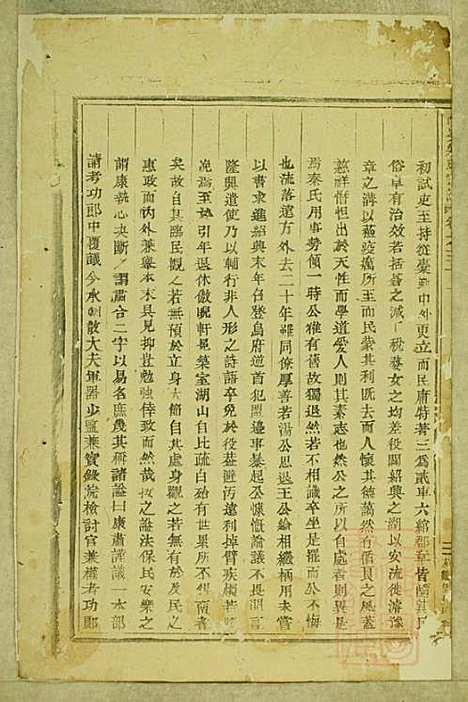 初試吏至持從橐新中外更立而民庸特著三為貳車六綰郡章皆蘭其民
俗卓有治效若括蒼之減税婺女之均差役開紹興之湖以安流徙濬豫
章之溝以蘇疫癘所至而民蒙其利既去而人懷其德藹然有循良之風蓋
慈祥愷悌出於天性而學道愛人則其素志也然公之所以自處者則異是
焉秦氏用事勢傾一時公雅有舊故獨退然若不相識卒坐是罷而公不悔
也流落遠方外去二十年雖同僚厚善若湯公思退王公綸相繼柄用未嘗
以書自通紹興末召登烏府逆酋犯盟邊事暴起公慷慨論議不長開言
隆興遣使乃以輔行非人形之詩語卒免於役益避污遠利掉臂疾顧若
俛焉至於引年退休僦晛軒是築室湖山白比疏白殆有世累所不
矣故自其臨民觀之若無預於立身大節自其處身觀之若無有於及民之
惠政而內外兼舉本末具見抑豈勉強倖致而然哉按之謚法保民安樂之
謂康執心決斷之謂肅合二字以易名庶幾其稱諸謚曰康肅謹議一本部
請考功郎中覆議今承朝散大夫軍器少監兼實錄院檢討官兼權考功郎